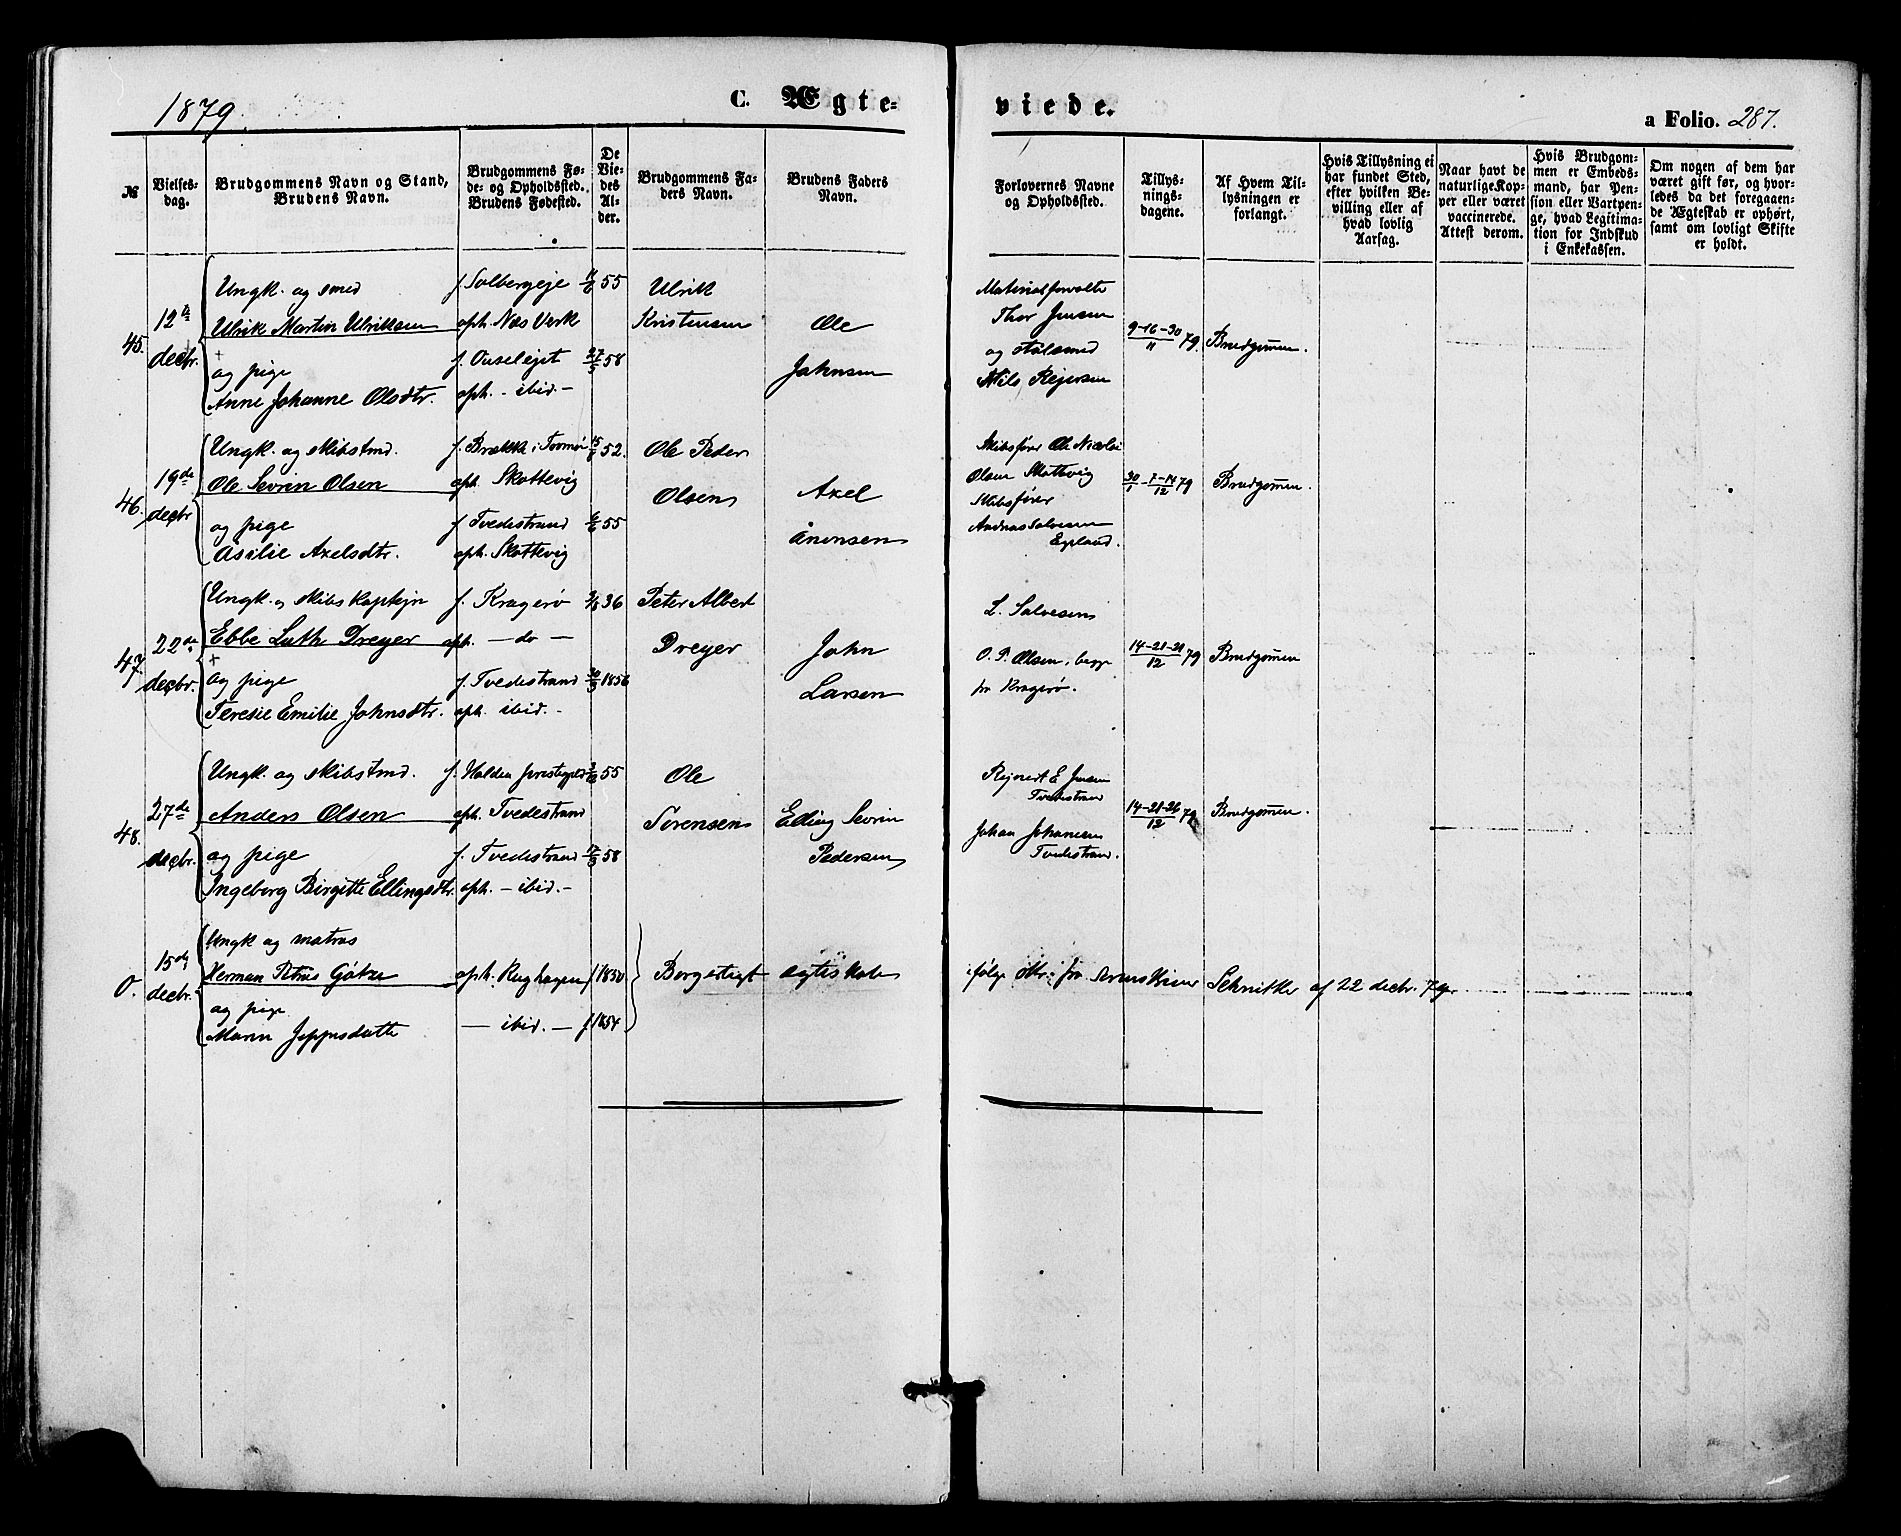 1879.
C. Ægte-
viede.
a Folio. 287.
№
Vielses-
dag.
Brudgommens Navn og Stand,
Brudens Navn.
Brudgommens Fø-
de- og Opholdssted.
Brudens Fødested.
De
Vie-
des
Al-
der.
Brudgommens Fa-
ders Navn.
Brudens Faders
Navn.
Forlovernes Navne
og Opholdssted.
Tillys-
nings-
dagene.
Af Hvem Til-
lysningen er
forlangt.
Hvis Tillysning ei
har fundet Sted,
efter hvilken Be-
villing eller af
hvad lovlig
Aarsag.
Naar havt de
naturlige Kop-
per eller været
vaccinerede.
Attest derom.
Hvis Brudgom-
men er Embeds-
mand, har Pen-
sion eller Vartpen-
ge, hvad Legitima-
tion for Indskud
i Enkekassen.
Om nogen af dem har
været gift før, og hvor-
ledes da det foregaaen-
de Ægteskab er ophørt,
samt om lovligt Skifte
er holdt.
45.
12te
decbr.
Ungk. og smed
Ulrik Martin Ulriksen
og pige
Anne Johanne Olsdtr.
f. Solbergeje
oph. Næs Verk
f. Ouselejet
oph. - ibid -
11/6 55
27/5 58
Ulrik
Kristensen
Ole
Johnsen
Materialforvalter
Thor Jensen
og stålsmed
Nils Rejersen
9-16-30/11 79.
Brudgommen.
46.
19de
decbr
Ungk. og skibstmd.
Ole Sevrin Olsen
og pige
Asilie Axelsdtr.
f. Brækka i Tromø
oph. Skottevig
f. Tvedestrand
oph. Skottevig
52.
6/6 55
Ole Peder
Olsen
Axel
Ånensen
Skibsfører Ole Nicolai
Olsen Skottevig
Skibsfører
Andreas Salvesen
Egeland.
79
Brudgommen.
47.
22de
decbr.
Ungk. og skibskaptejn
Ebbe Luth Dreyer
og pige
Teresie Emilie Johnsdtr.
f. Kragerø
oph. - do -
f. Tvedestrand
oph. ibid. -
36
1856
Peter Albert
Dreyer
John
Larsen
L. Salvesen
O. P. Olsen, begge
fra Kragerø.
14-21-21/12 79
Brudgommen
48.
27de
decbr.
Ungk. og skibstmd.
Anders Olsen
og pige
Ingeborg Birgitte Ellingsdtr.
f. Holden præstegjeld
oph. Tvedestrand
f. Tvedestrand
oph. - ibid. -
55
58
Ole
Sørensen
Elling Sevrin
Pedersen
Rejnert E. Jensen
Tvedestrand
Johan Johansen
Tvedestrand.
14-21-26/12 79
Brudgommen.
0.
15de
decbr.
Ungk og matros
Herman Petrus Götze
og pige
Maren Jeppesdatter
oph. Rughagen
- ibid. -
f 1850
f 1854
Borgerligt ægteskab
ifølge attr. fra sorenskriver Schnitler af 22 decbr. 79.